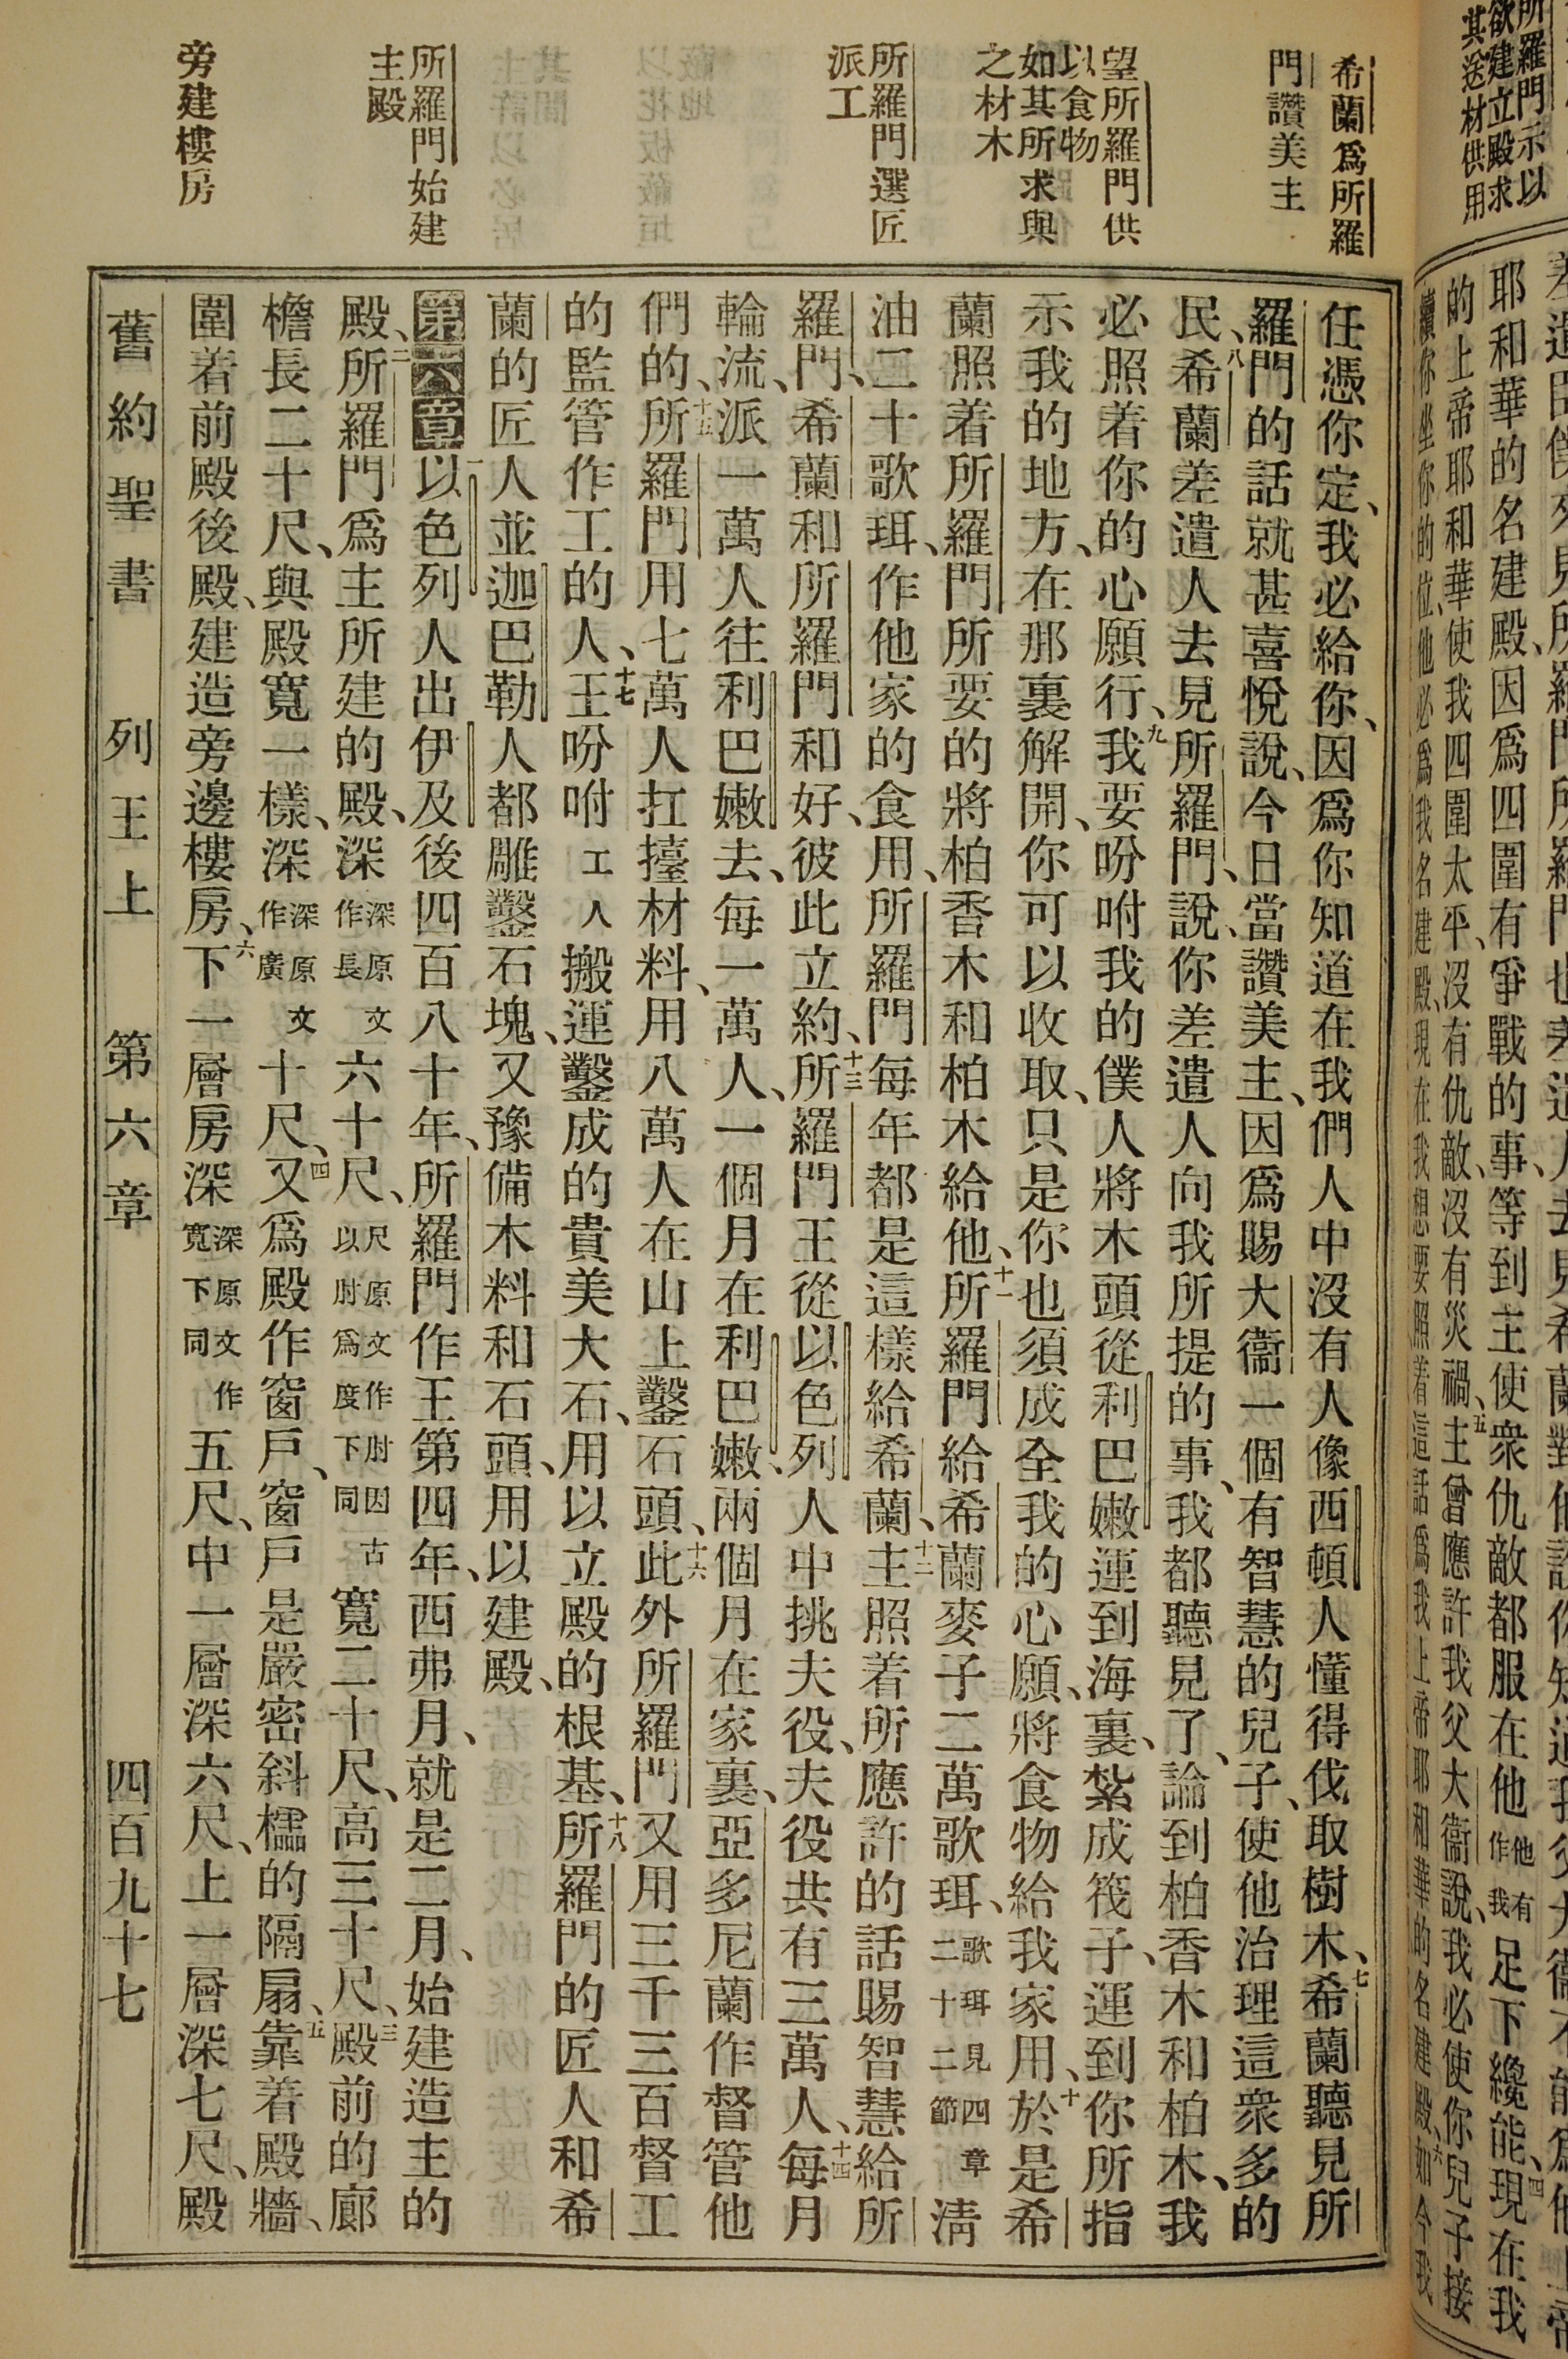 所羅門示以
欲建立殿求
其送材供用
耶和華的名建殿、因爲四圍有爭戰的事、等到主使衆仇敵都服在他他有作我足下纔能、四現在我
的上帝耶和華使我四圍太平、沒有仇敵、沒有災禍、五主曾應許我父大衞說、我必使你兒子接
續你坐你的位、他必爲我名建殿、現在我想要照着這話爲我上帝耶和華的名建殿、六如今我
希蘭爲所羅
門讚美主
望所羅門供
以食物
如其所求與
之材木
所羅門選匠
派工
所羅門始建
主殿
旁建樓房
任憑你定、我必給你、因爲你知道在我們人中沒有人像西頓人懂得伐取樹木、七希蘭聽見所
羅門的話就甚喜悅說、今日當讚美主、因爲賜大衞一個有智慧的兒子、使他治理這衆多的
民、八希蘭差遣人去見所羅門、說、你差遣人向我所提的事、我都聽見了、論到柏香木和柏木、我
必照着你的心願行、九我要吩咐我的僕人將木頭從利巴嫩運到海裏、紮成筏子、運到你所指
示我的地方、在那裏解開、你可以收取、只是你也須成全我的心願、將食物給我家用、十於是希
蘭照着所羅門所要的將柏香木和柏木給他、十一所羅門給希蘭麥子二萬歌珥、歌珥見四章二十二節清
油二十歌珥、作他家的食用、所羅門每年都是這樣給希蘭、十二主照着所應許的話賜智慧給所
羅門、希蘭和所羅門和好、彼此立約、十三所羅門王從以色列人中挑夫役、夫役共有三萬人、十四每月
輪流、派一萬人往利巴嫩去、每一萬人、一個月在利巴嫩、兩個月在家裏、亞多尼蘭作督管他
們的、十五所羅門用七萬人扛擡材料、用八萬人在山上鑿石頭、十六此外所羅門又用三千三百督工
的監管作工的人、十七王吩咐工人搬運鑿成的貴美大石、用以立殿的根基、十八所羅門的匠人和希
蘭的匠人並迦巴勒人都雕鑿石塊、又豫備木料和石頭、用以建殿、
第六章一以色列人出伊及後四百八十年、所羅門作王第四年、西弗月、就是二月、始建造主的
殿、二所羅門爲主所建的殿、深深原文作長六十尺、尺原文作肘因古以肘爲度下同寬二十尺、高三十尺、三殿前的廊
檐長二十尺、與殿寬一樣、深深原文作廣十尺、四又爲殿作窗戶、窗戶是嚴密斜櫺的隔扇、五靠着殿牆、
圍着前殿後殿、建造旁邊樓房、六下一層房深深原文作寬下同五尺、中一層深六尺、上一層深七尺、殿
舊約聖書　列王上　第六章　四百九十七